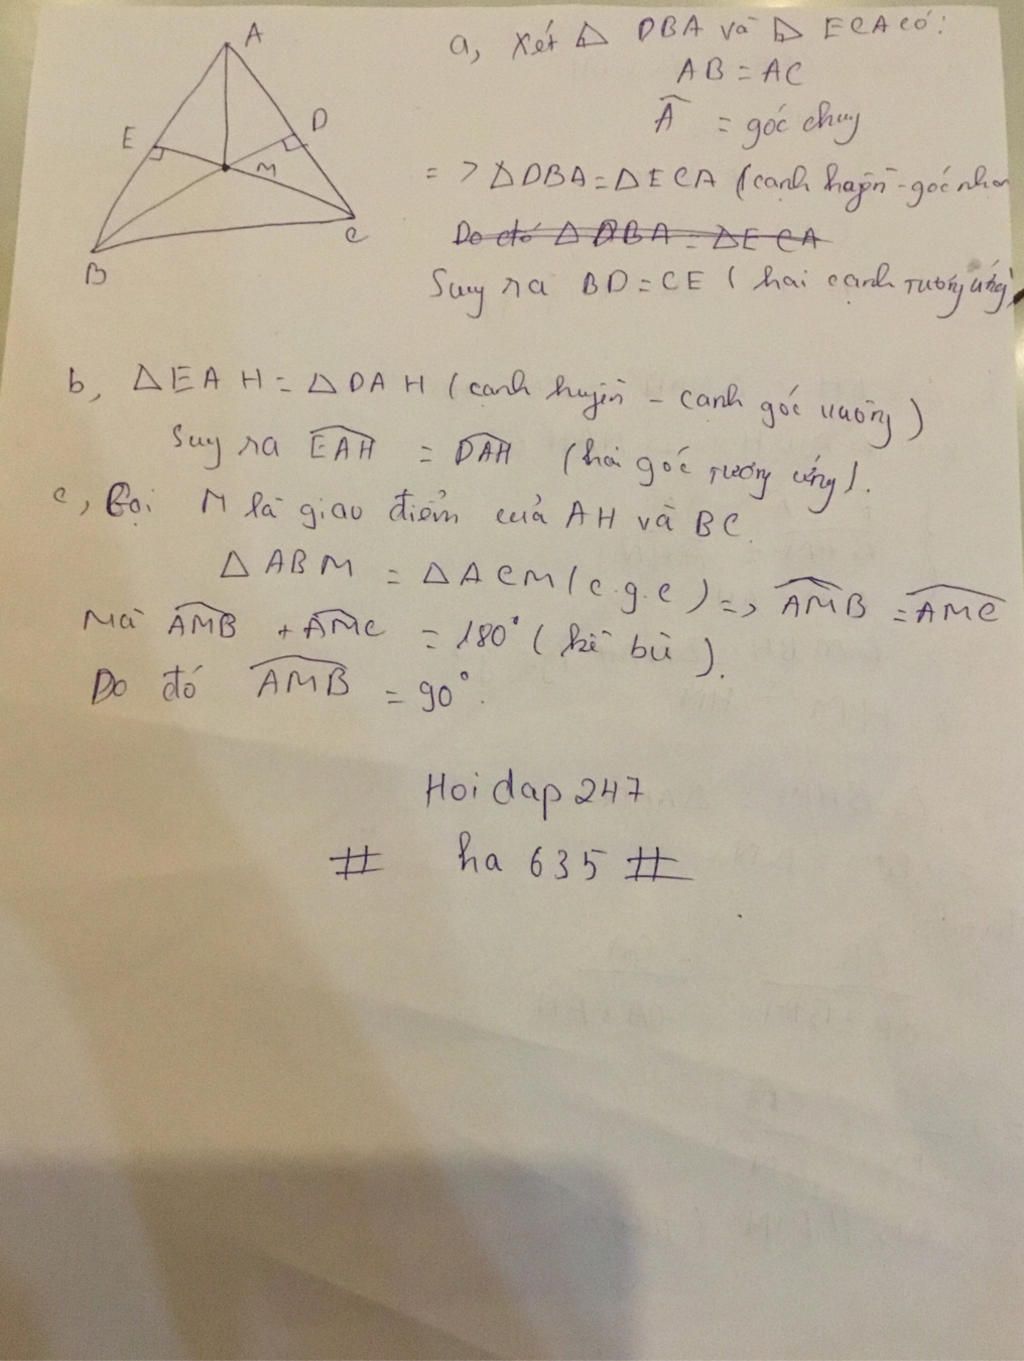 A
E
D
M
B
C
a, Xét Δ DBA và Δ ECA có:
AB = AC
Â = góc chug
=> ΔDBA = ΔECA (cạnh huyền - góc nhọn
Do đó Δ DBA = ΔECA
Suy ra BD = CE ( hai cạnh tương ứng)
b, ΔEAH = ΔDAH (cạnh huyền - cạnh góc vuông)
Suy ra EAH = DAH (hai góc tương ứng).
c, Gọi M là giao điểm của AH và BC.
Δ ABM = ΔACM (c.g.c) => AMB = AMC
Mà AMB + AMC = 180° ( kề bù ).
Do đó AMB = 90°.
Hoi dap 247
# ha 635 #